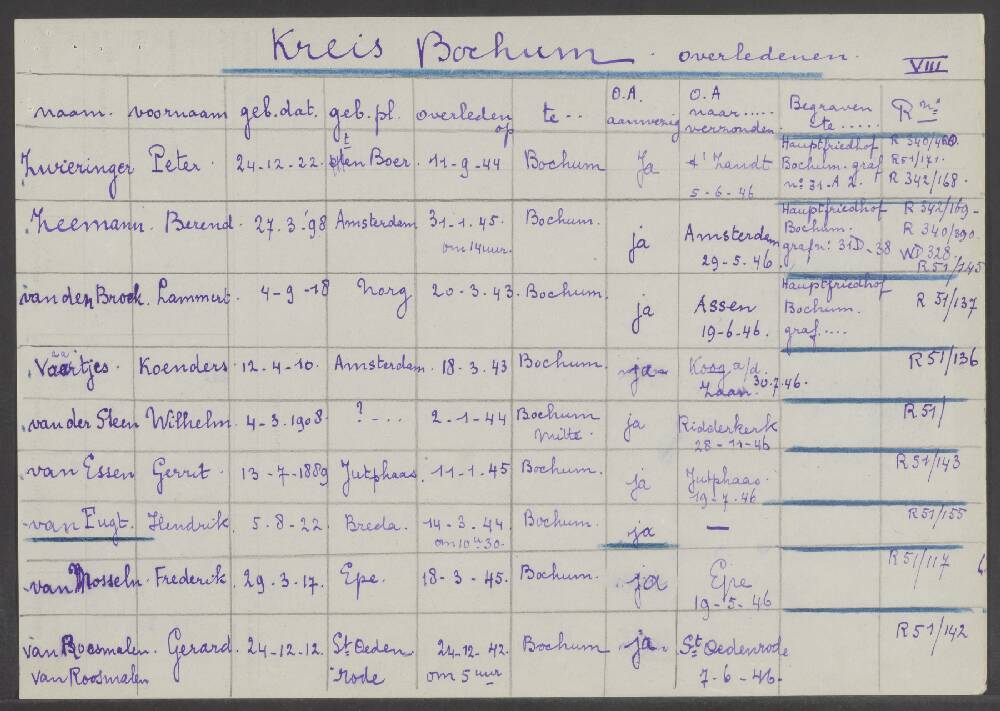 Kreis Bochum . overledenen. VIII
naam. voornaam geb.dat. geb.pl. overleden op te .. O.A. aanwezig O.A naar ..... verzonden. Begraven te ..... R no
Zwieringer Peter. 24-12-22. ten Boer. 11-9-44 Bochum Ja 't Zandt 5-6-46 Hauptfriedhof Bochum. graf no 31-A 2. R 51/171. R 342/168.
Zeemann. Berend. 27.3.'98 Amsterdam 31-1-45. om 14 uur. Bochum. ja Amsterdam 29-5-46. Hauptfriedhof Bochum. graf no: 31D-38 R 342/169- R 340/390. WD 328. R 51/145
van den Broek. Lammert. 4-9-18 Norg 20-3-43. Bochum. ja Assen 19-6-46. Hauptfriedhof Bochum. graf.... R 51/137
Vaartjes. Koenders. 12-4-10. Amsterdam. 18-3-43 Bochum. ja Koog a/d. Zaan. 30.7.46. R51/136
van der Steen Wilhelm. 4-3-1908. ? - .. 2-1-44 Bochum Mitte. ja Ridderkerk 28-11-46 R51/
van Essen Gerrit. 13-7-1889 Jutphaas. 11-1-45 Bochum. ja Jutphaas. 19-7-46 R51/143
van Eugt. Hendrik. 5.8-22. Breda. 14-3.44 om 10 u 30. Bochum. ja — R51/155
van Mosseln. Frederik. 29.3-17. Epe. 18-3-45. Bochum. ja Epe 19-5-46 R51/117
van Roosmalen. Gerard. 24-12-12. St. Oeden 24-12-42. Bochum ja. St. Oedenrode R51/142
van Roosmalen rode om 5 uur 7-6-46.